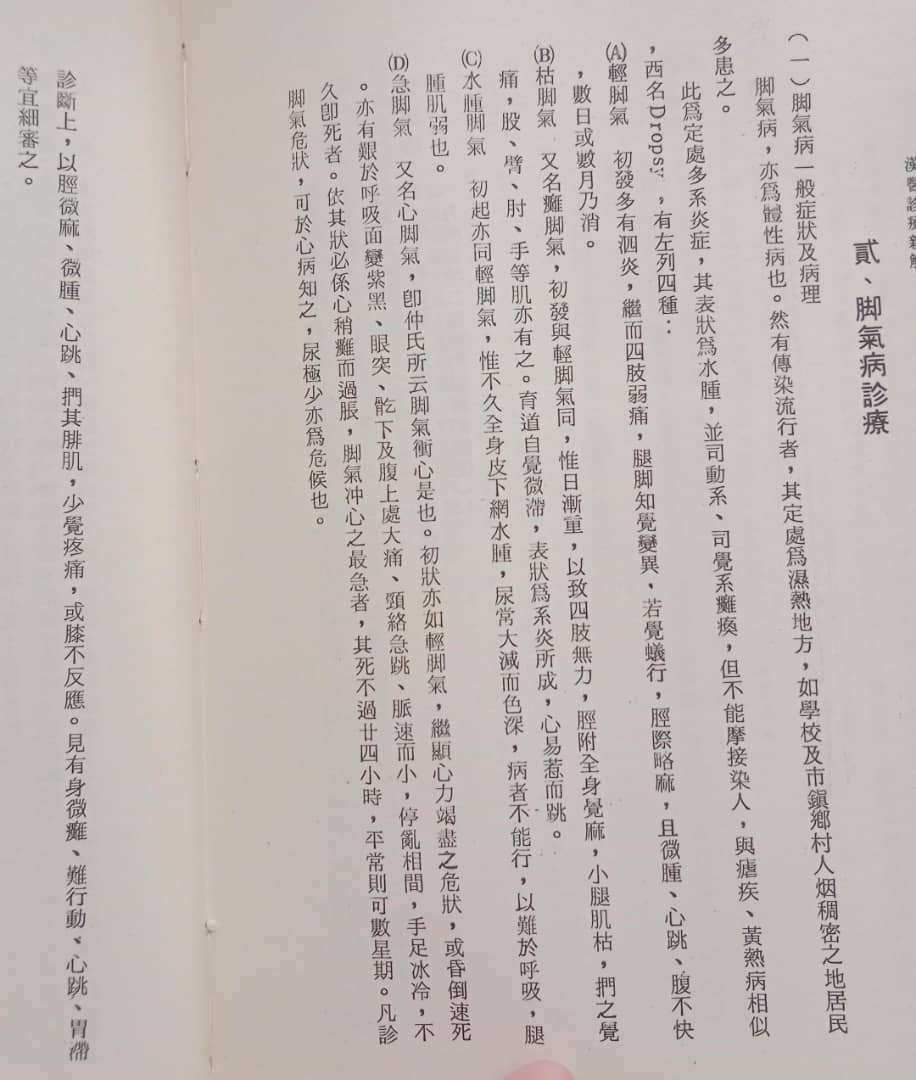 漢醫診療新
貳、脚氣病診療
（一）脚氣病一般症狀及病理
脚氣病，亦爲體性病也。然有傳染流行者，其定處爲濕熱地方，如學校及市鎭鄉村人烟稠密之地居民
多患之。
此爲定處多系炎症，其表狀爲水腫，並司動系、司覺系癱瘓，但不能摩接染人，與瘧疾、黃熱病相似
，西名Dropsy，有左列四種：
(A)輕脚氣　初發多有泗炎，繼而四肢弱痛，腿脚知覺變異，若覺蟻行，脛際略麻，且微腫、心跳、腹不快
，數日或數月乃消。
(B)枯脚氣　又名癱脚氣，初發與輕脚氣同，惟日漸重，以致四肢無力，脛附全身覺麻，小腿肌枯，捫之覺
痛，股、臂、肘、手等肌亦有之。育道自覺微滯，表狀爲系炎所成，心易惹而跳。
(C)水腫脚氣　初起亦同輕脚氣，惟不久全身皮下網水腫，尿常大減而色深，病者不能行，以難於呼吸，腿
腫肌弱也。
(D)急脚氣　又名心脚氣，卽仲氏所云脚氣衝心是也。初狀亦如輕脚氣，繼顯心力竭盡之危狀，或昏倒速死
。亦有艱於呼吸面變紫黑、眼突、骬下及腹上處大痛、頸絡急跳、脈速而小，停亂相間，手足冰冷，不
久卽死者。依其狀必係心稍癱而過脹，脚氣冲心之最急者，其死不過廿四小時，平常則可數星期。凡診
脚氣危狀，可於心病知之，尿極少亦爲危候也。
診斷上，以脛微麻、微腫、心跳、捫其腓肌，少覺疼痛，或膝不反應。見有身微癱、難行動、心跳、胃滯
等宜細審之。